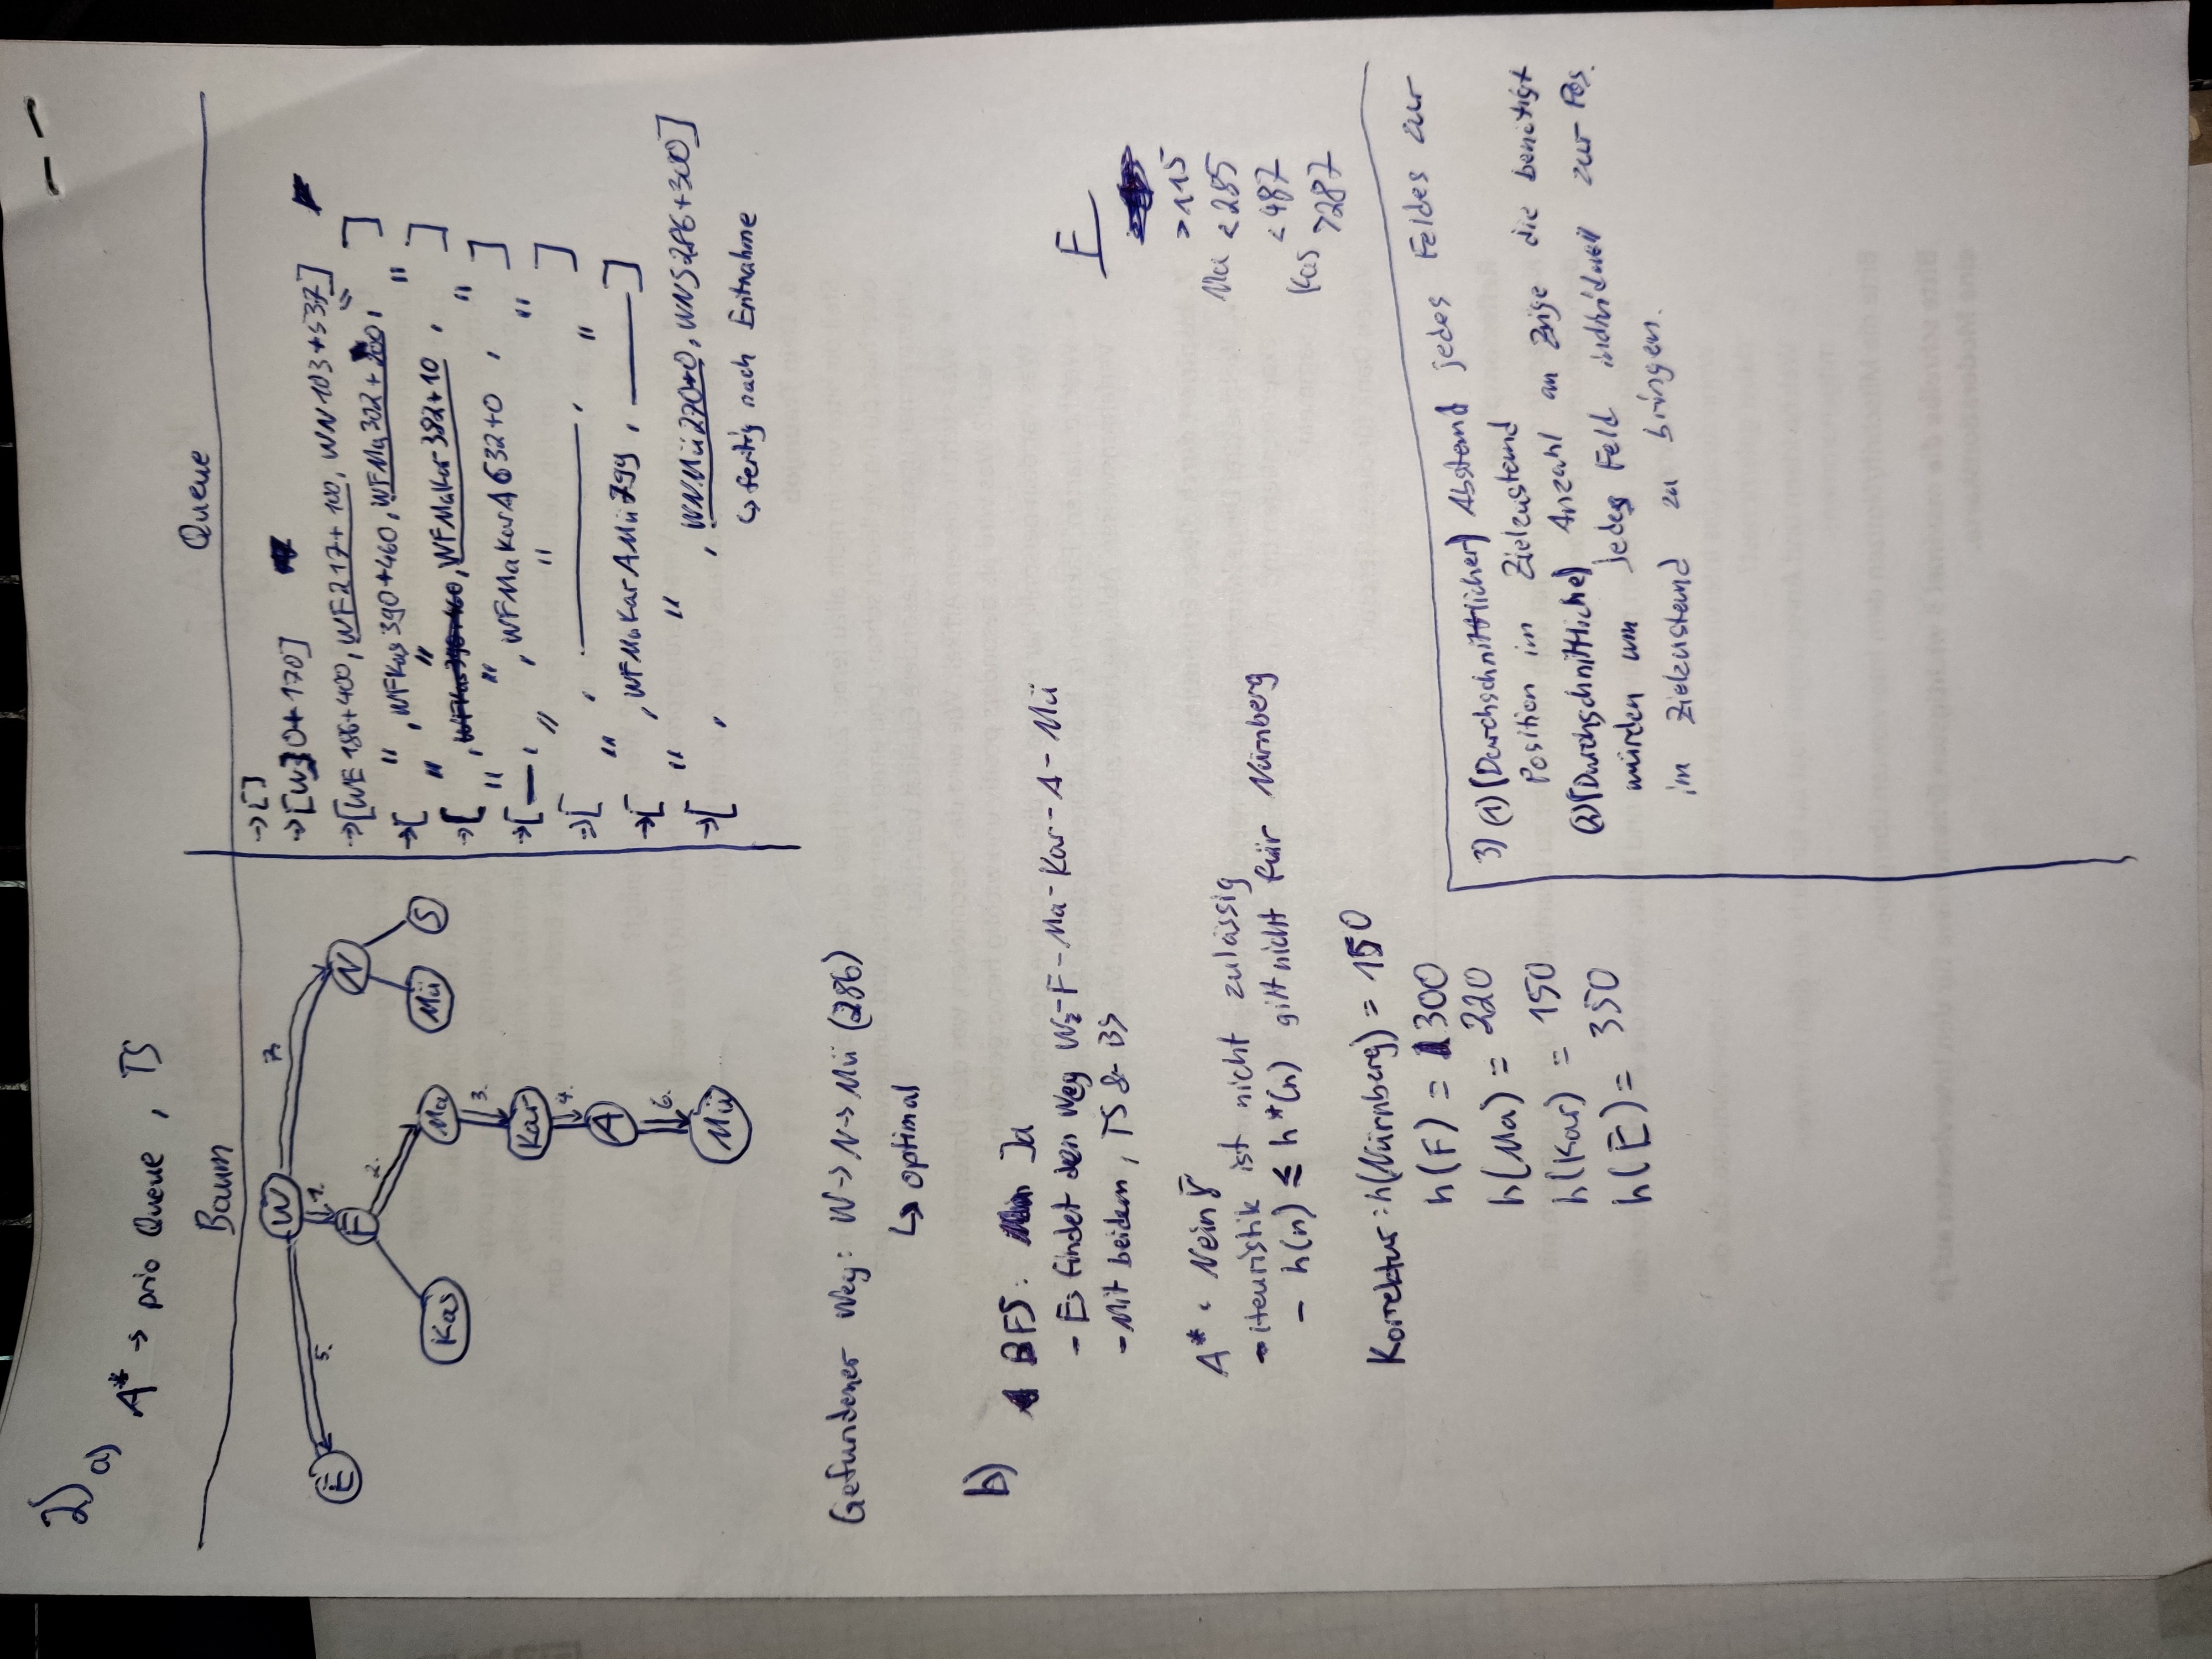 2)
a)
A* → prio Queue, TS
Baum
Queue
W
E
F
N
Kas
Ma
Mü
S
Kar
A
Mü
5.
1.
7.
2.
3.
4.
6.
→ []
→ [W 0+170]
→ [WE 186+400, WF 217+100, WN 103+537]
→ [ " , WFKas 390+460, WFMa 302+200, " ]
→ [ " , " , WFMaKar 382+10 , " ]
→ [ — , " , WFMaKarA 632+0 , " ]
→ [ " , — , " ]
→ [ " , WFMaKarAMü 799 , — ]
→ [ " , " , WNMü 270+0, WNS 286+300]
↳ fertig nach Entnahme
Gefundener Weg: W → N → Mü (286)
↳ optimal
b)
BFS: Ja
- Es findet den Weg W - F - Ma - Kar - A - Mü
- Mit beidem, TS & BS
A*: Nein
- Heuristik ist nicht zulässig
- h(n) ≤ h*(n) gilt nicht für Nürnberg
Korrektur: h(Nürnberg) = 150
h(F) = 300
h(Ma) = 220
h(Kar) = 150
h(E) = 350
F
>115
Ma <285
<487
Kas >287
3) (1) (Durchschnittlicher) Abstand jedes Feldes zur
Position im Zielzustand
(2) (Durchschnittliche) Anzahl an Züge die benötigt
würden um jedes Feld individuell zur Pos.
im Zielzustand zu bringen.